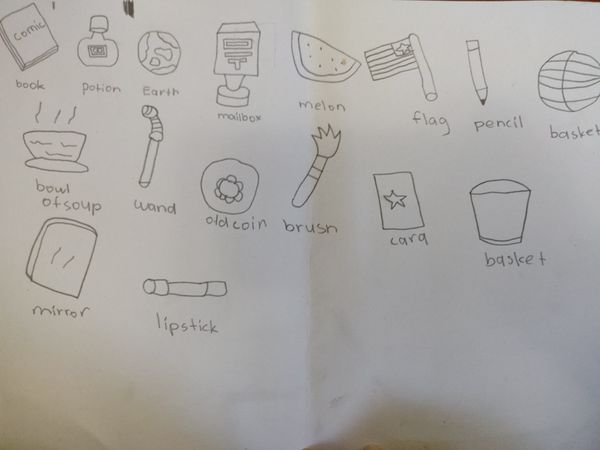 comic
book
potion
Earth
mailbox
melon
flag
pencil
basket
bowl
of soup
wand
old coin
brush
card
basket
mirror
lipstick